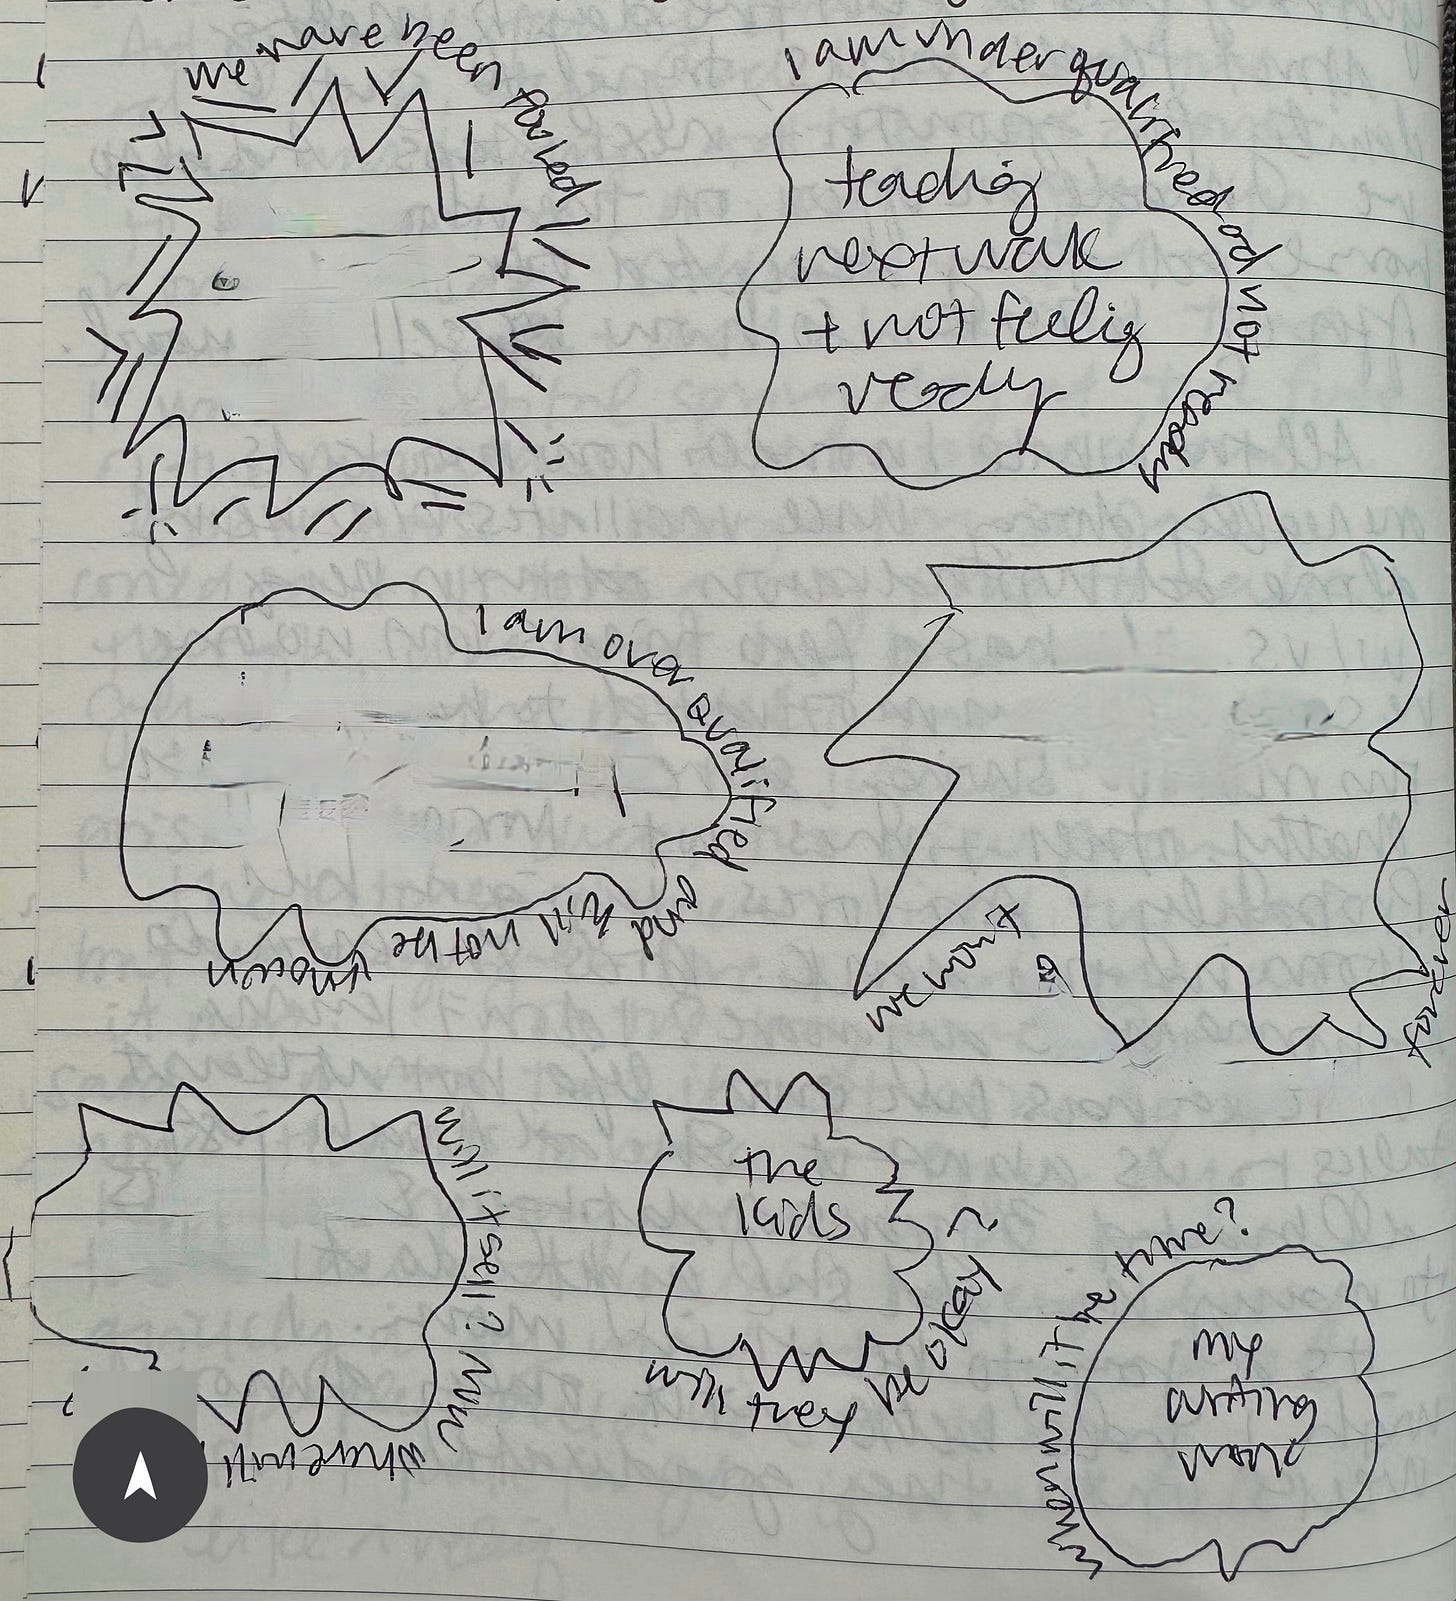 we have been fooled
I am under qualified and not ready
teaching
next week
+ not feeling
ready
I am over qualified and will not be
known
we won't
go
forever
will it sell?
where will
the
kids
will they be okay?
when will it be time?
my
writing
work